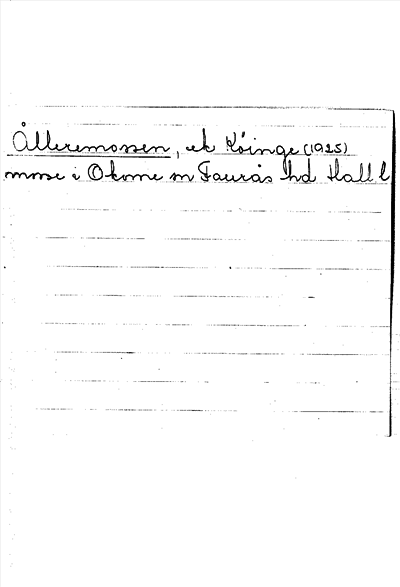 Ålleremossen, ek Köinge (1925)
mosse i Okome sn Faurås hd Hall l